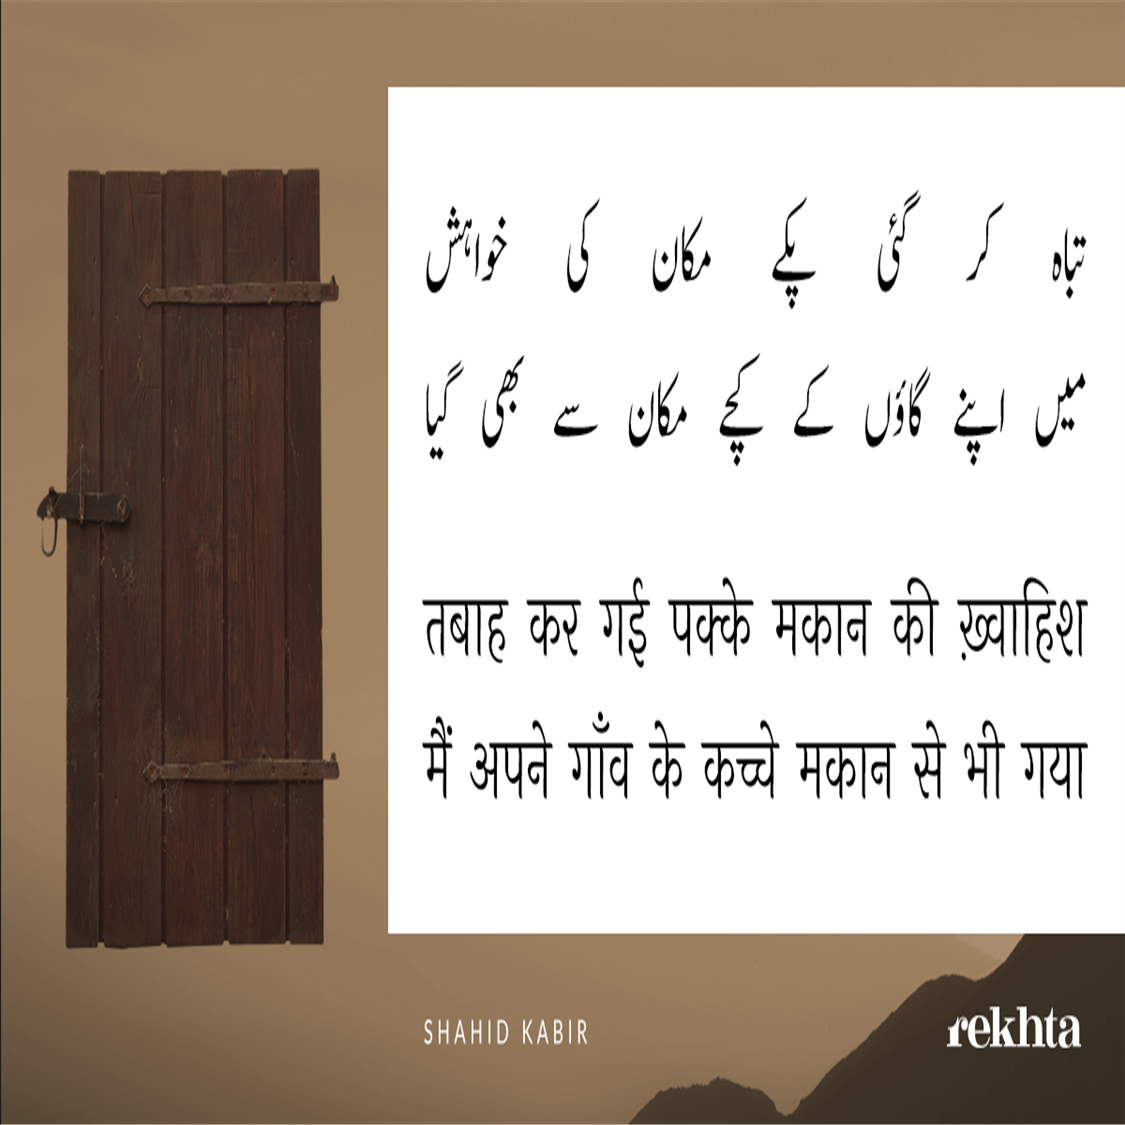 تباہ کر گئی پکے مکان کی خواہش
میں اپنے گاؤں کے کچے مکان سے بھی گیا
तबाह कर गई पक्के मकान की ख़्वाहिश
मैं अपने गाँव के कच्चे मकान से भी गया
SHAHID KABIR
rekhta